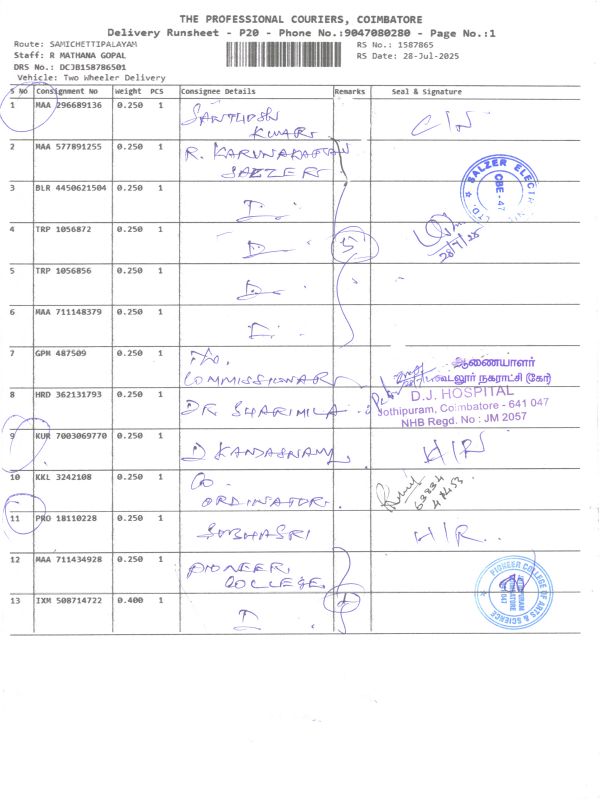 THE PROFESSIONAL COURIERS, COIMBATORE
Delivery Runsheet - P20 - Phone No.:9047080280 - Page No.:1
Route: SAMICHETTIPALAYAM
Staff: R MATHANA GOPAL
DRS No.: DCJB158786501
Vehicle: Two Wheeler Delivery
RS No.: 1587865
RS Date: 28-Jul-2025
S No Consignment No Weight PCS Consignee Details Remarks Seal & Signature
1 MAA 296689136 0.250 1 SANTHOSH
KUMAR.
2 MAA 577891255 0.250 1 R. KARUNAKARAN
SALZER
SALZER ELECT
CBE - 47
LTD.
3 BLR 4450621504 0.250 1
4 TRP 1056872 0.250 1 5
28/7/25
5 TRP 1056856 0.250 1
6 MAA 711148379 0.250 1
7 GPM 487509 0.250 1 The.
COMMISSIONAR
ஆணையாளர்
கூடலூர் நகராட்சி (கோ)
8 HRD 362131793 0.250 1 DR SHARIMILA.
D.J. HOSPITAL
Jothipuram, Coimbatore - 641 047
NHB Regd. No : JM 2057
9 KUR 7003069770 0.250 1 D KANDASAMY. H/R
10 KKL 3242108 0.250 1 CO.
ORDINATOR.
11 PRO 18110228 0.250 1 SUBHASRI H/R.
12 MAA 711434928 0.250 1 PIONEER
COLLEGE.
PIONEER COLLEGE OF ARTS & SCIENCE
13 IXM 508714722 0.400 1